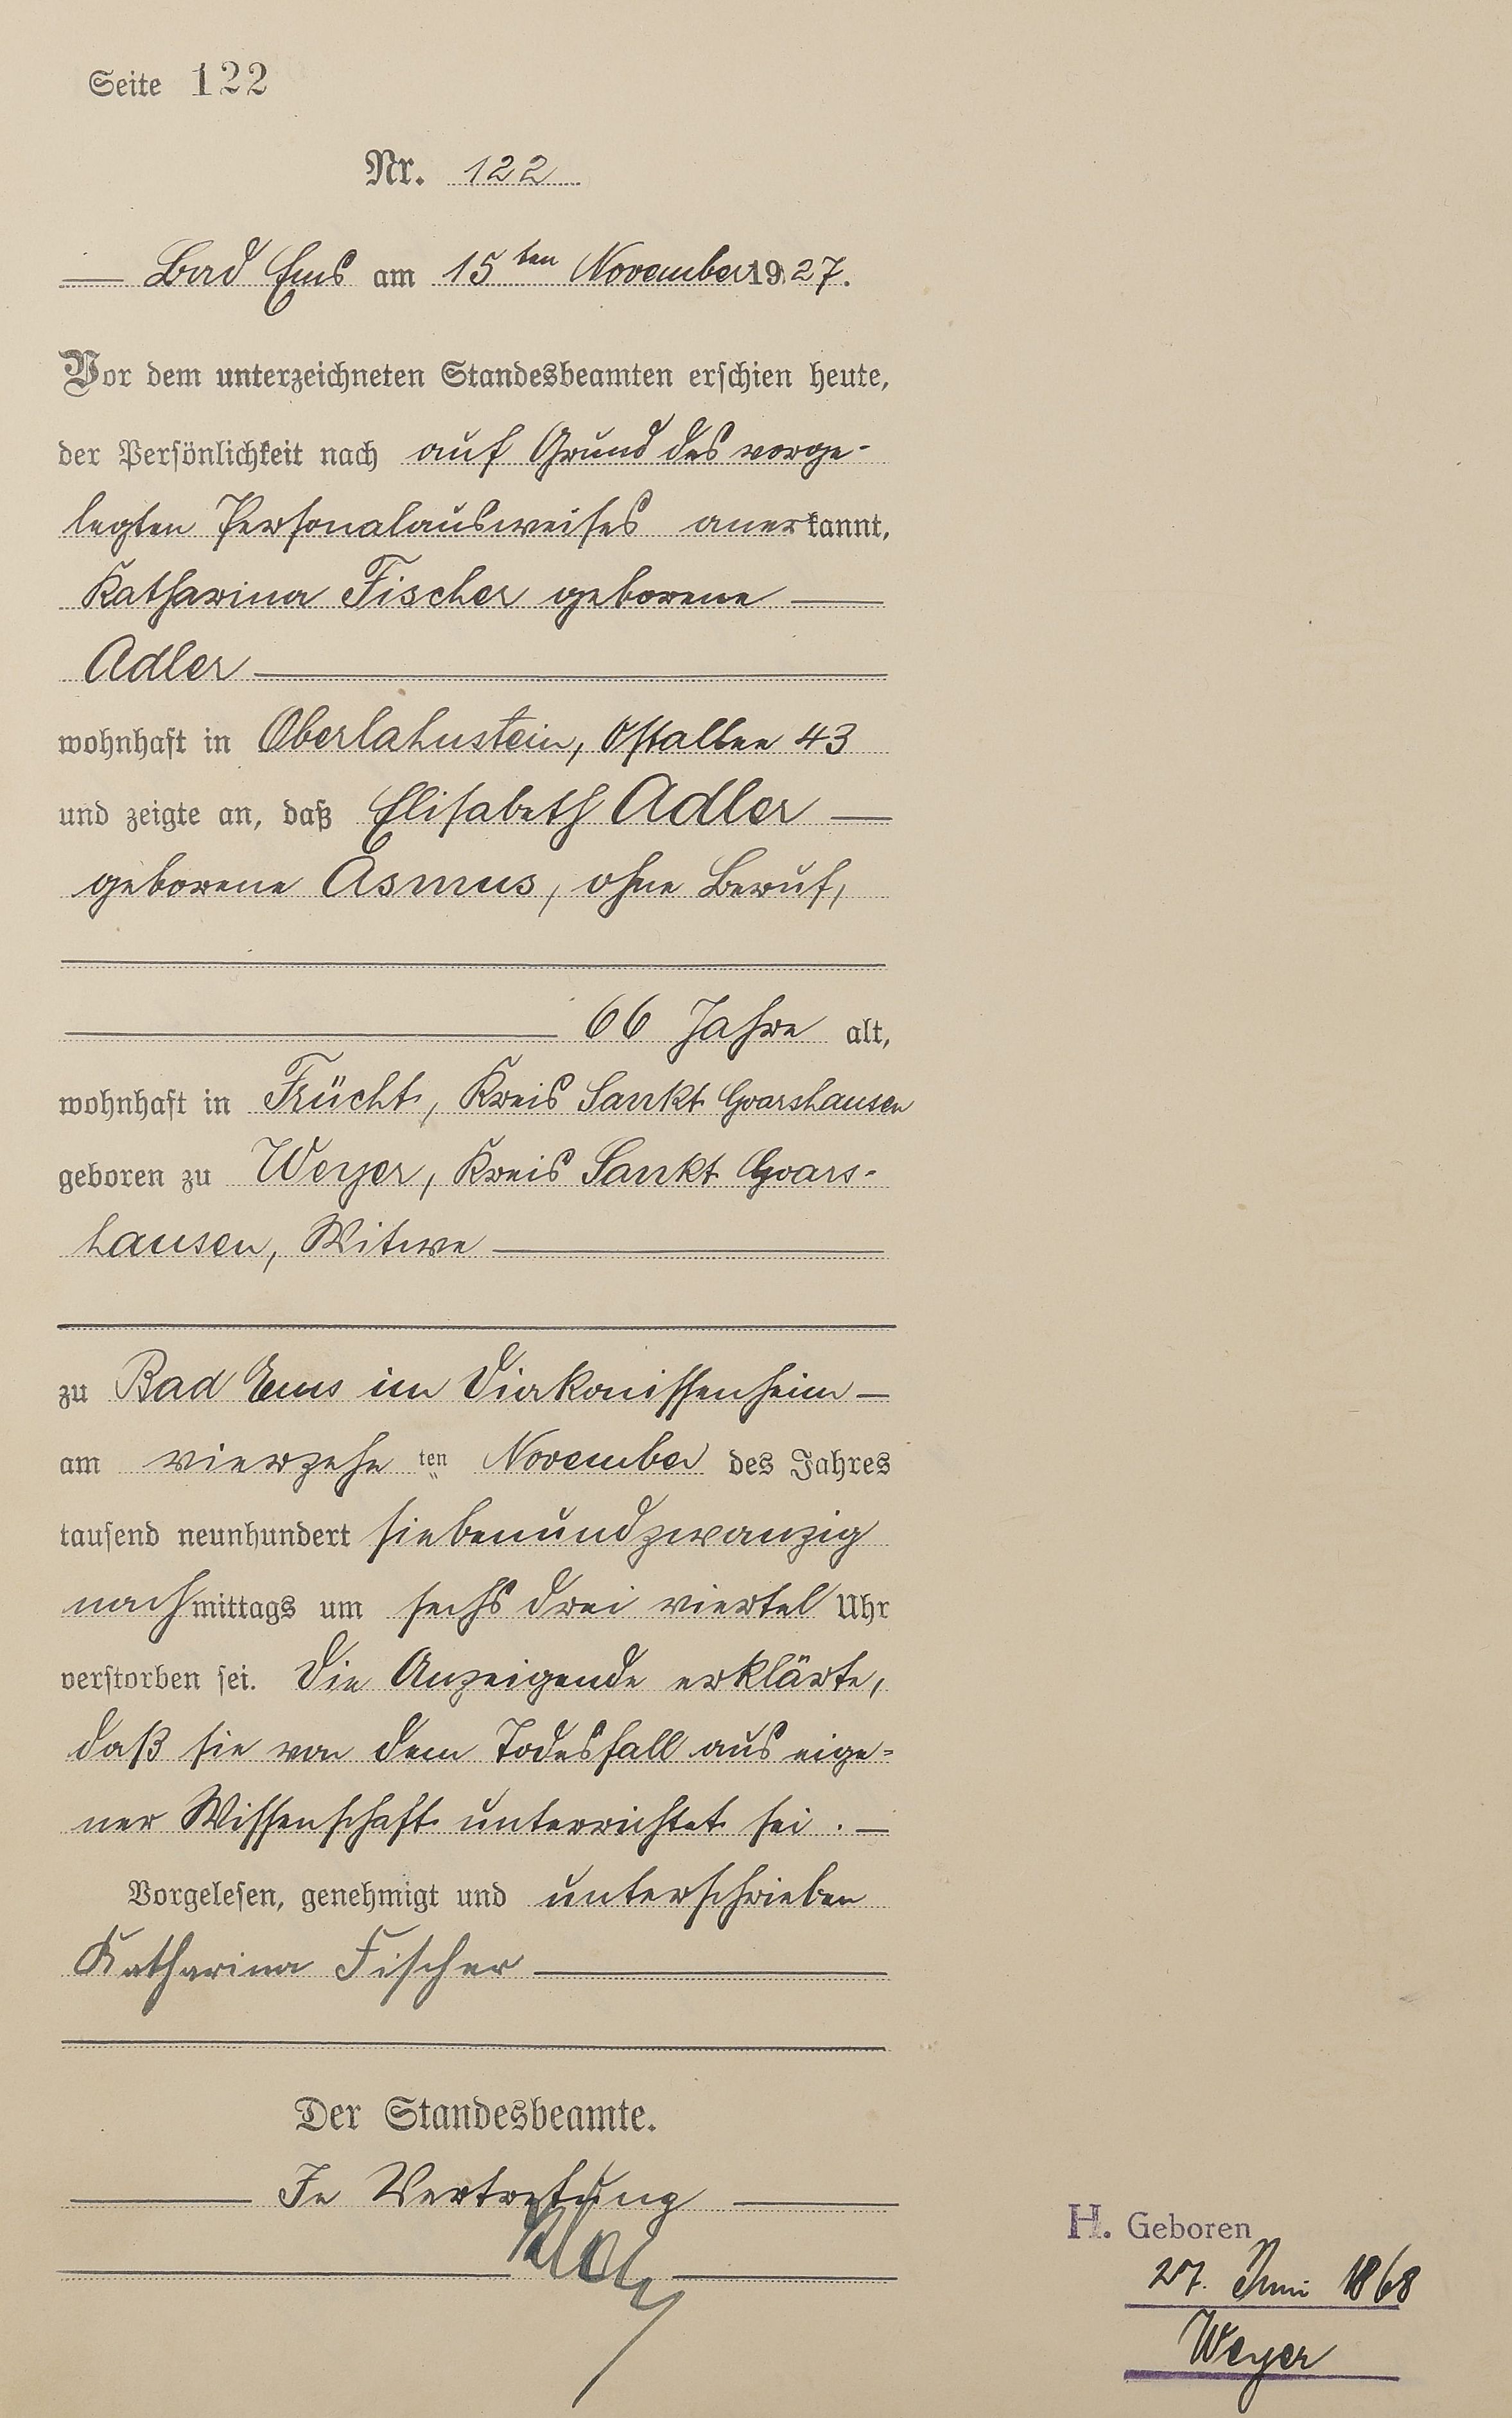 Seite 122
Nr. 122
Bad Ems am 15ten November 1927.
Vor dem unterzeichneten Standesbeamten erschien heute,
der Persönlichkeit nach auf Grund des vorge-
legten Personalausweises anerkannt,
Katharina Fischer geborene
Adler
wohnhaft in Oberlahnstein, Ostallee 43
und zeigte an, daß Elisabeth Adler
geborene Asmus, ohne Beruf,
66 Jahre alt,
wohnhaft in Frücht, Kreis Sankt Goarshausen
geboren zu Weyer, Kreis Sankt Goars-
hausen, Witwe
zu Bad Ems im Diakonissenheim
am vierzehnten November des Jahres
tausend neunhundert siebenundzwanzig
nachmittags um sechs drei viertel Uhr
verstorben sei. Die Anzeigende erklärte,
daß sie von dem Todesfall aus eige-
ner Wissenschaft unterrichtet sei.
Vorgelesen, genehmigt und unterschrieben
Katharina Fischer
Der Standesbeamte.
In Vertretung
H. Geboren
27. Juni 1868
Weyer